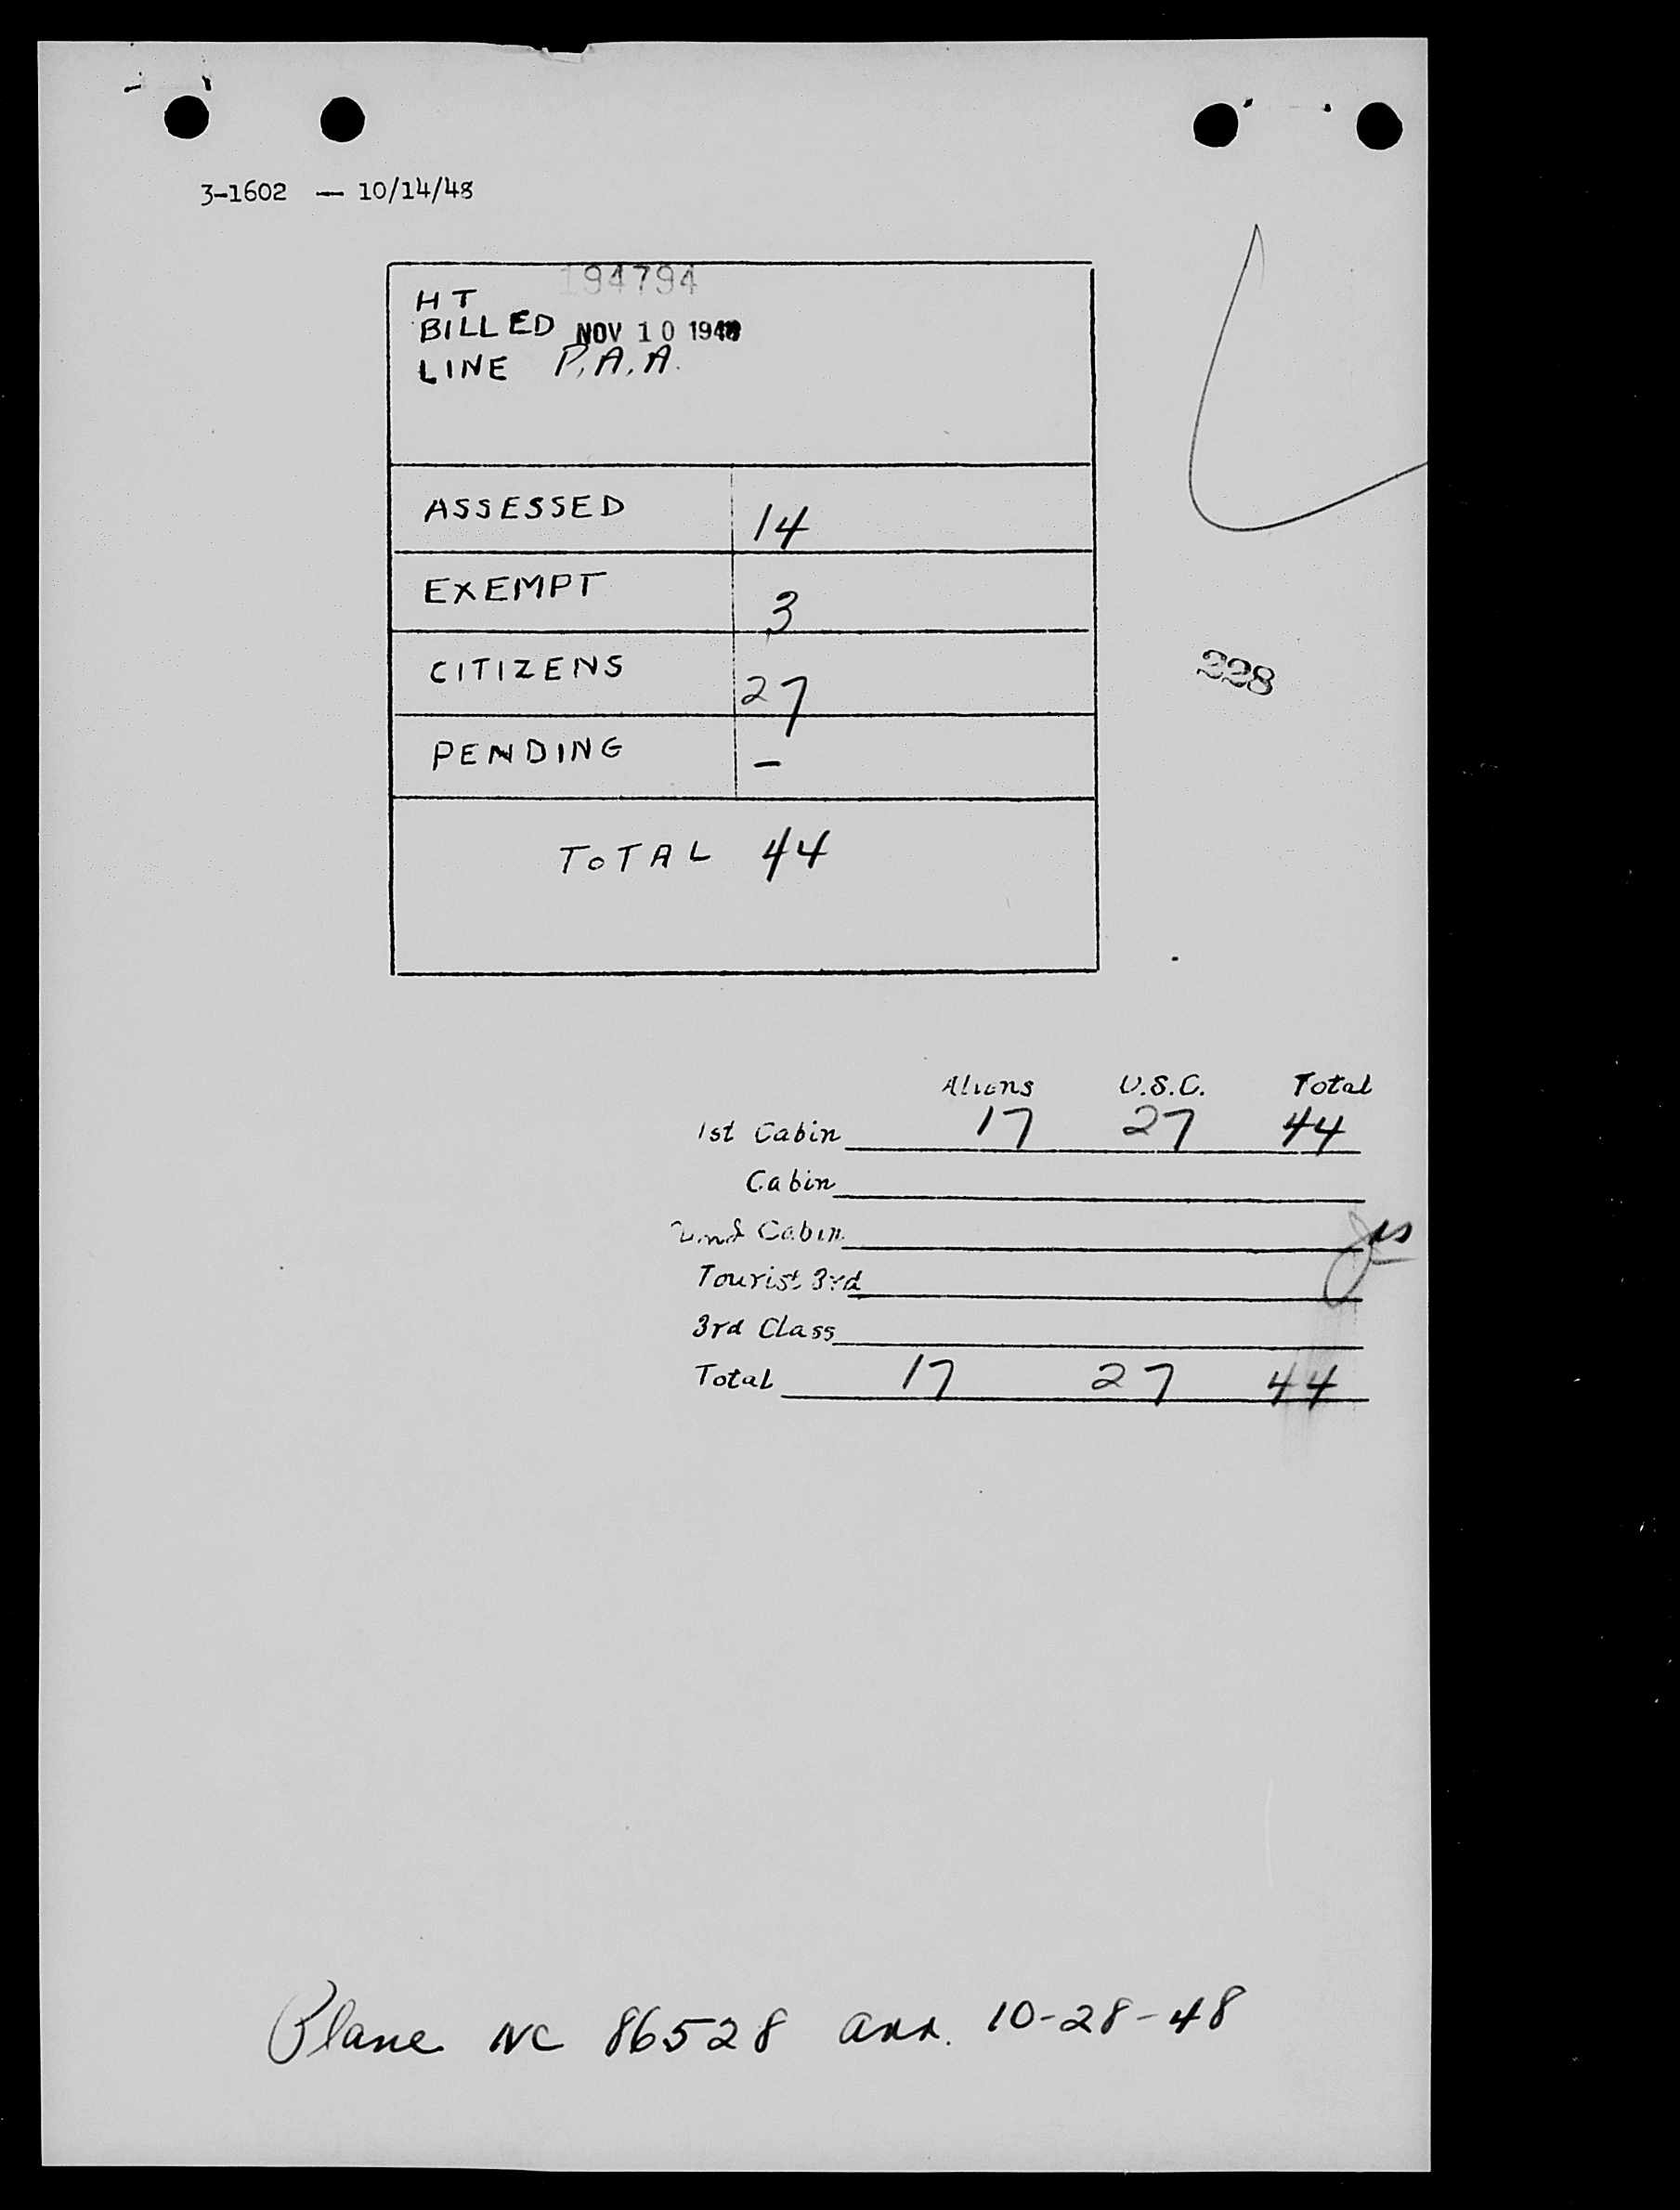 3-1602 — 10/14/48
194794
HT
BILLED NOV 10 1948
LINE P.A.A.
ASSESSED 14
EXEMPT 3
CITIZENS 27
PENDING –
TOTAL 44
228
Aliens U.S.C. Total
1st Cabin 17 27 44
Cabin
Cabin
Tourist 3rd
3rd Class
Total 17 27 44
Plane NC 86528 arr. 10-28-48